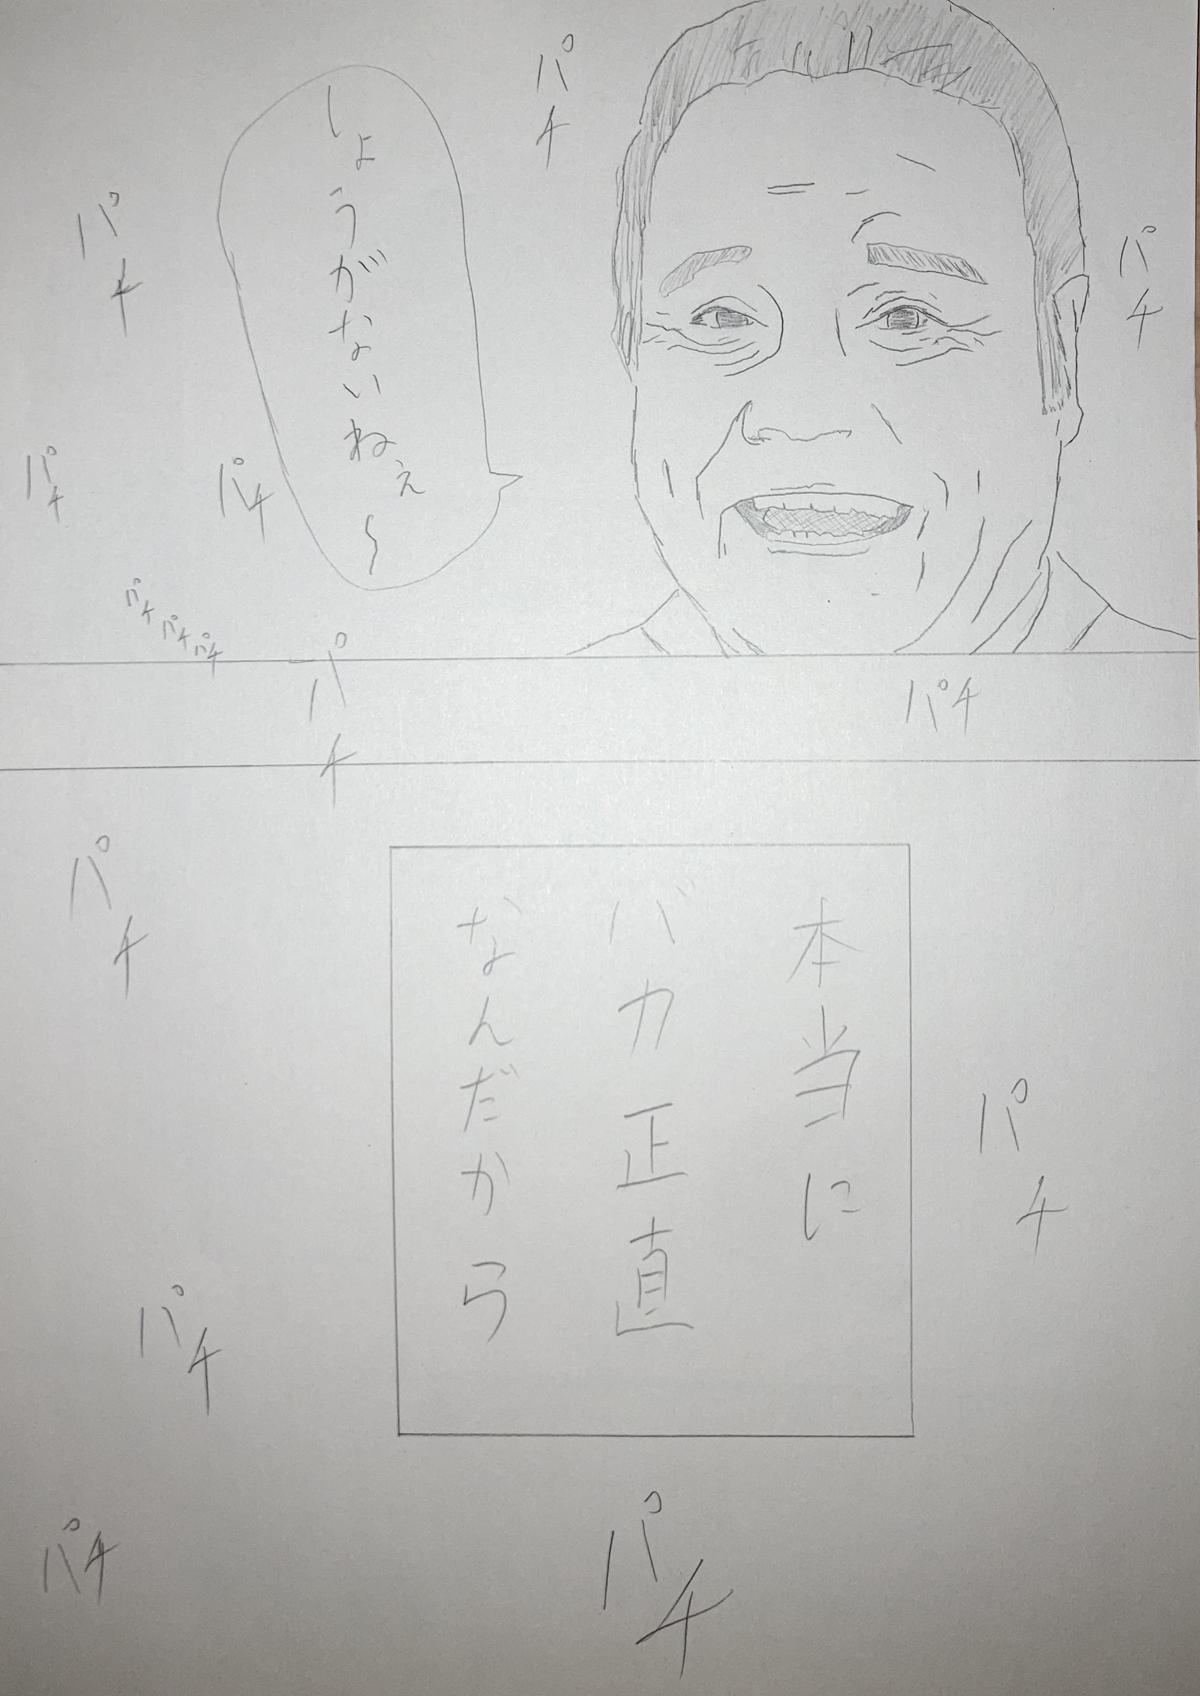 パチ
パチ
パチ
しょうがないねぇ～
パチ
パチ
パチ
パチ
パチ
パチ
パチ
本当に
バカ正直
なんだから
パチ
パチ
パチ
パチ
パチ